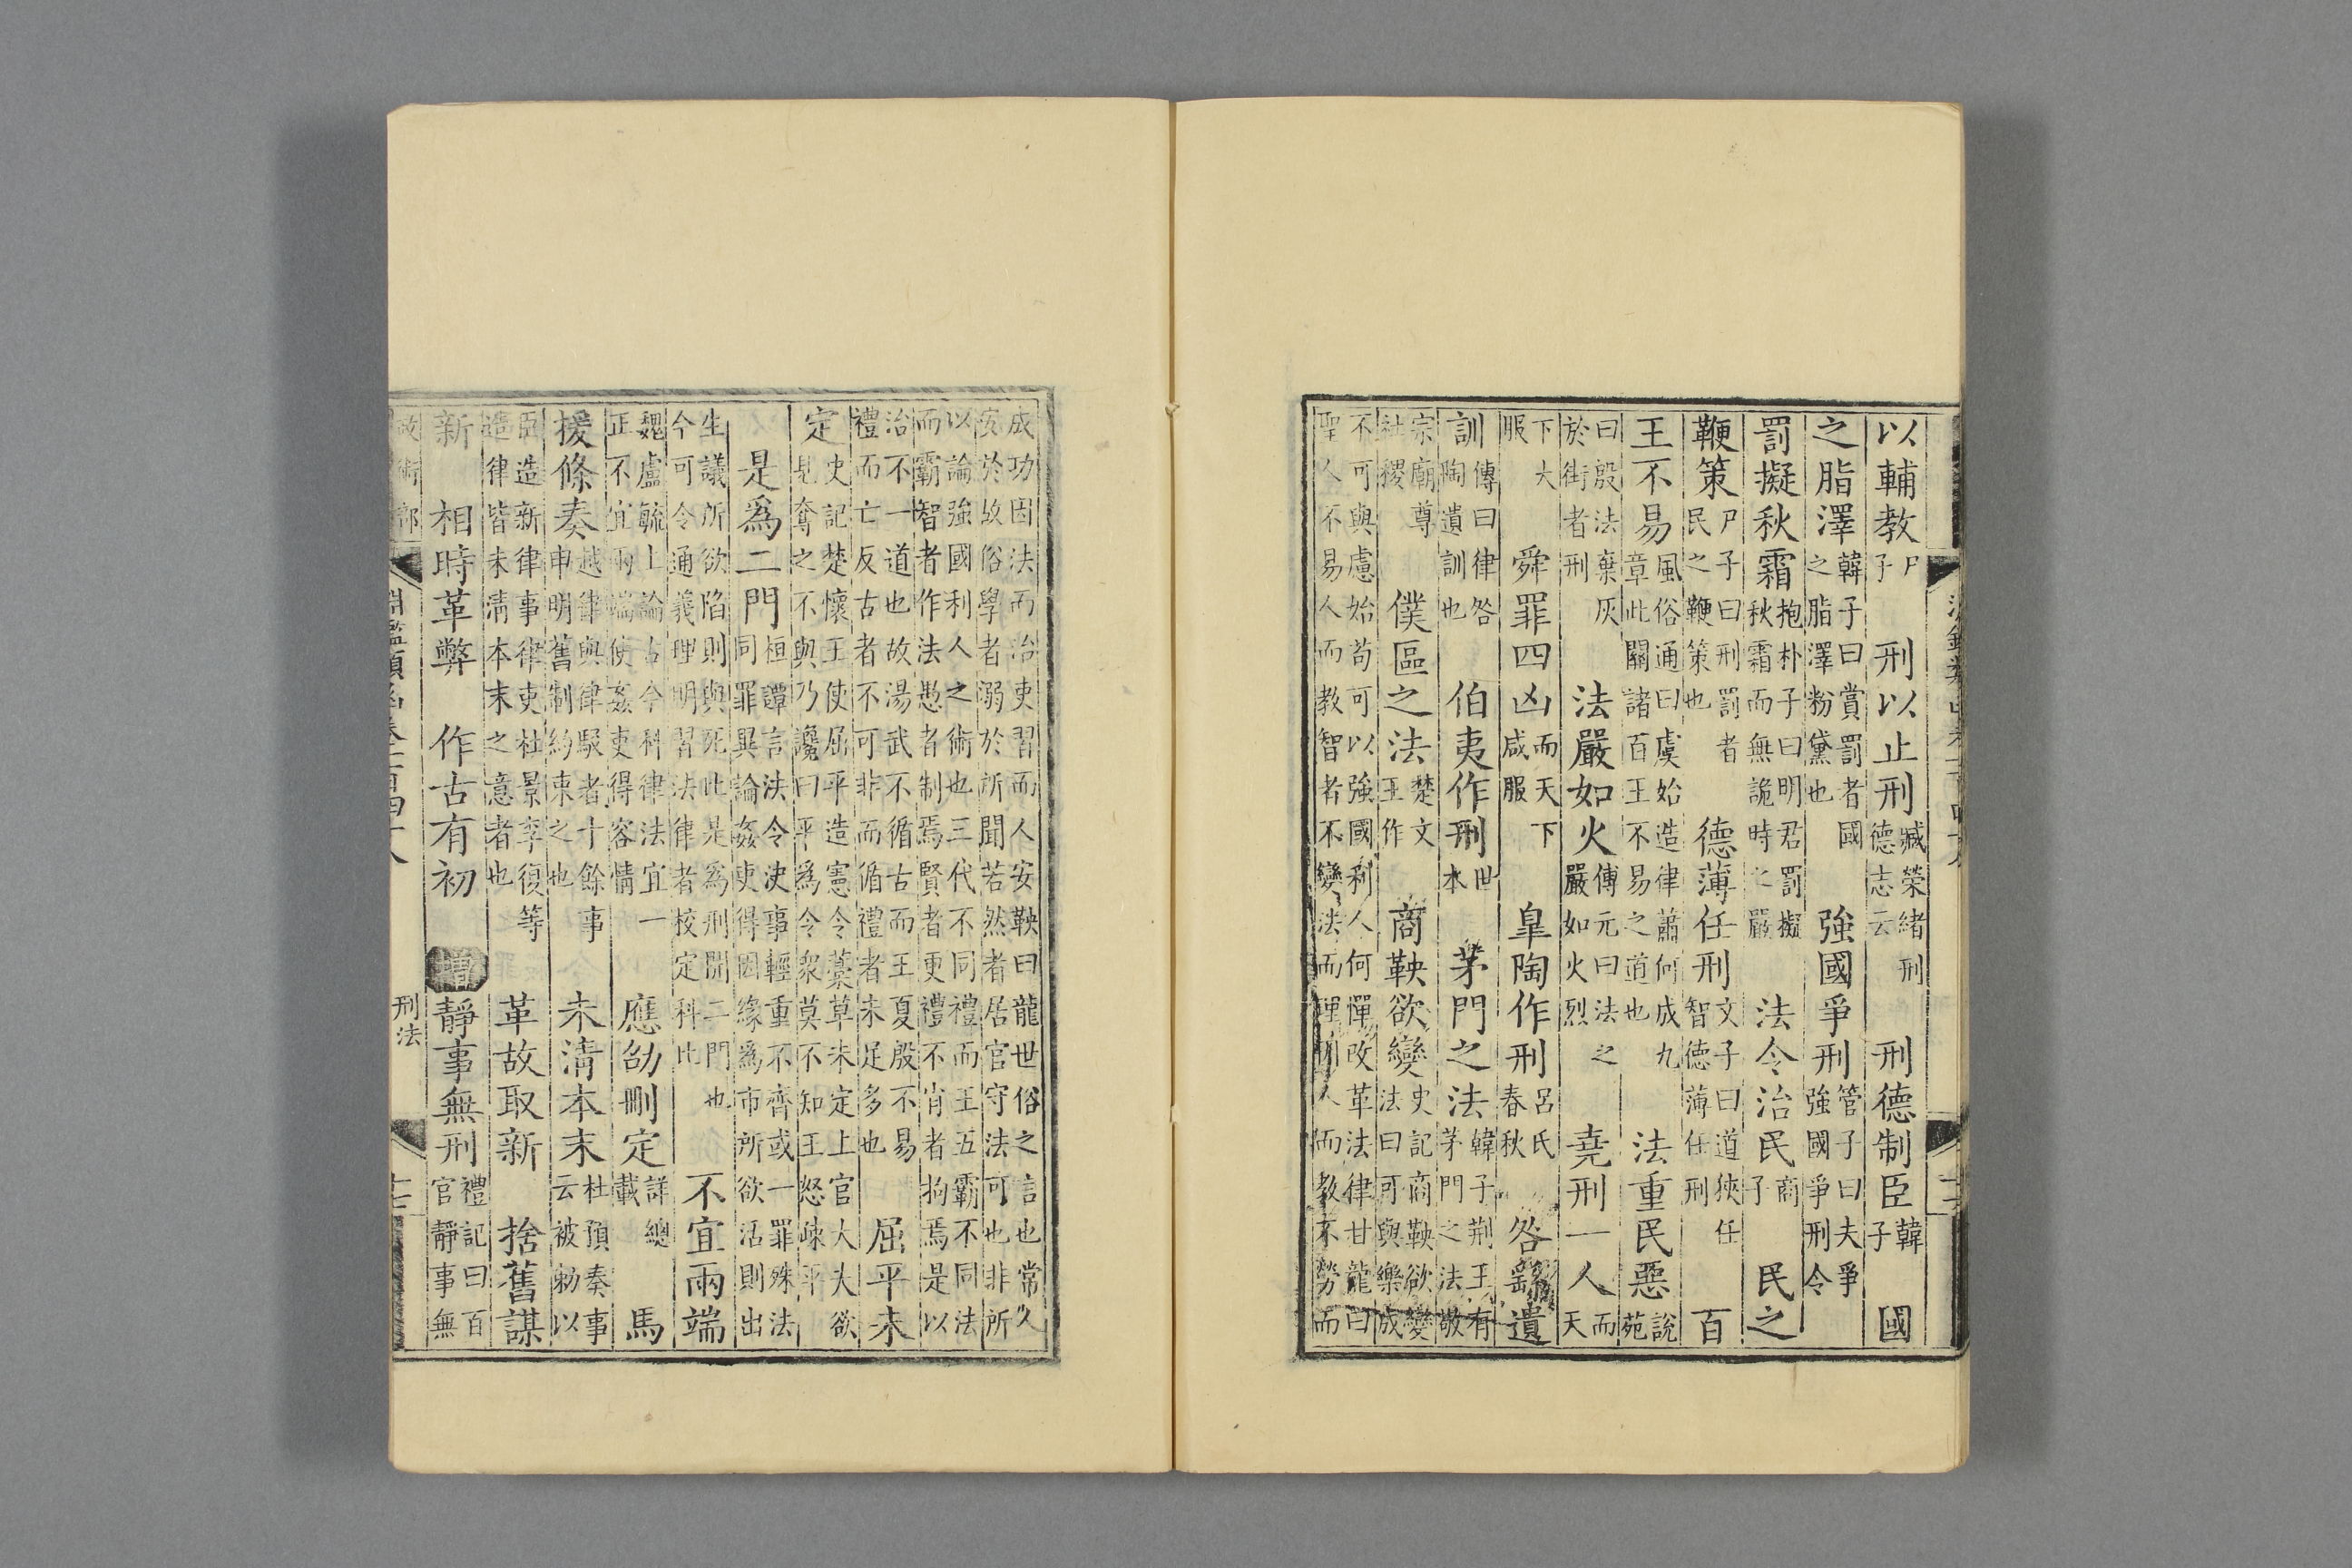 以輔教尸子　刑以止刑臧榮緒刑德志云　刑德制臣韓子　國
之脂澤韓子曰賞罰者國之脂澤粉黛也　強國爭刑管子曰夫爭強國爭刑令
罰擬秋霜抱朴子曰明君罰擬秋霜而無詭時之嚴　法令治民商子　民之
鞭策尸子曰刑罰者民之鞭策也　德薄任刑文子曰道狹任智德薄任刑　百
王不易風俗通曰虞始造律蕭何成九章此關諸百王不易之道也　法重民惡說苑
曰殷法棄灰於街者刑　法嚴如火傅元曰法之嚴如火烈　堯刑一人而天
下大服　舜罪四凶而天下咸服　皐陶作刑呂氏春秋　咎繇遺
訓傳曰律咎陶遺訓也　伯夷作刑世本　茅門之法韓子荆王有茅門之法敬
宗廟尊社稷　僕區之法楚文王作　商鞅欲變史記商鞅欲變法曰可與樂成
不可與慮始苟可以強國利人何憚改革法律甘龍曰聖人不易人而教智者不變法而理因人而教不勞而
成功因法而治吏習而人安鞅曰龍世俗之言也常久安於故俗學者溺於所聞若然者居官守法可也非所
以論強國利人之術也三代不同禮而王五霸不同法而霸智者作法愚者制焉賢者更禮不肖者拘焉是以
治不一道也故湯武不循古而王夏殷不易禮而亡反古者不可非而循禮者未足多也　屈平未
定史記楚懷王使屈平造憲令藁草未定上官大夫欲見奪之不與乃讒曰平爲令衆莫不知王怒疎平
是爲二門桓譚言法令決事輕重不齊或一罪殊法同罪異論姦吏得因緣爲市所欲活則出
生議所欲陷則與死此是爲刑開二門也今可令通義理明習法律者校定科比　不宜兩端
魏盧毓上論古今科律法宜一正不宜兩端使姦吏得容情　應劭刪定詳總載　馬
援條奏越律與律駁者十餘事申明舊制約束之也　未淸本末杜預奏事云被勑以
臣造新律事律吏杜景李復等造律皆未淸本末之意者也　革故取新　捨舊謀
新　相時革弊　作古有初　增靜事無刑禮記曰百官靜事無
淵鑑類函卷一百四十八　刑法